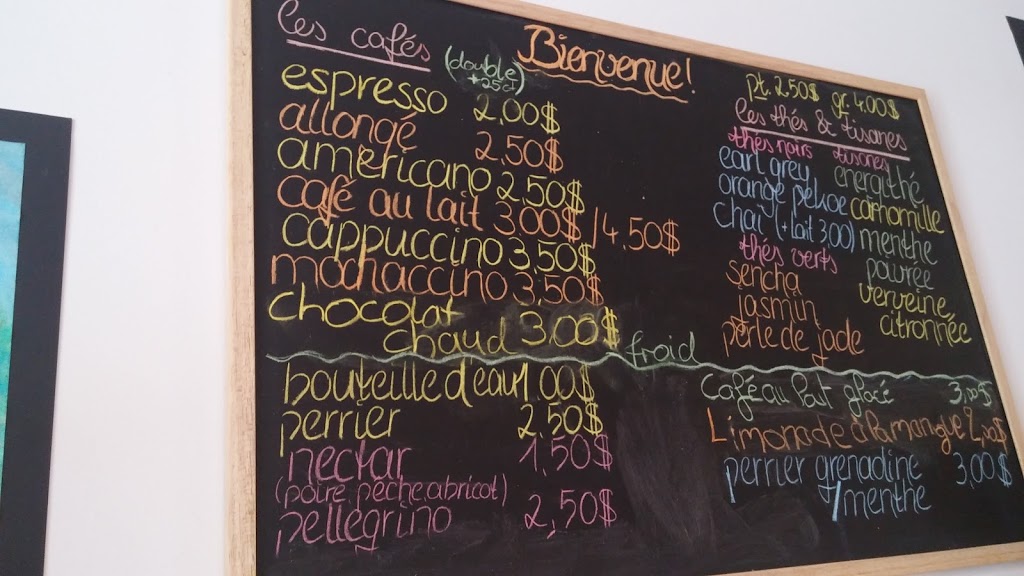 Bienvenue!
les cafés (double)
+25¢
espresso 2,00$
allongé 2,50$
americano 2,50$
café au lait 3,00$/4,50$
cappuccino 3,50$
mochaccino 3,50$
chocolat
chaud 3,00$
pt. 2.50$ gr. 4.00$
les thés & tisanes
thés noirs tisanes
earl grey énergithé
orange pekoe camomille
chai (+lait 3,00) menthe
thés verts poivrée
sencha verveine
jasmin citronnée
perle de jade
froid
bouteille d'eau 1,00$
perrier 2,50$
nectar 1,50$
(poire, pêche, abricot)
pellegrino 2,50$
Café au lait glacé
Limonade à la mangue 2,50$
perrier grenadine 3,00$
/menthe